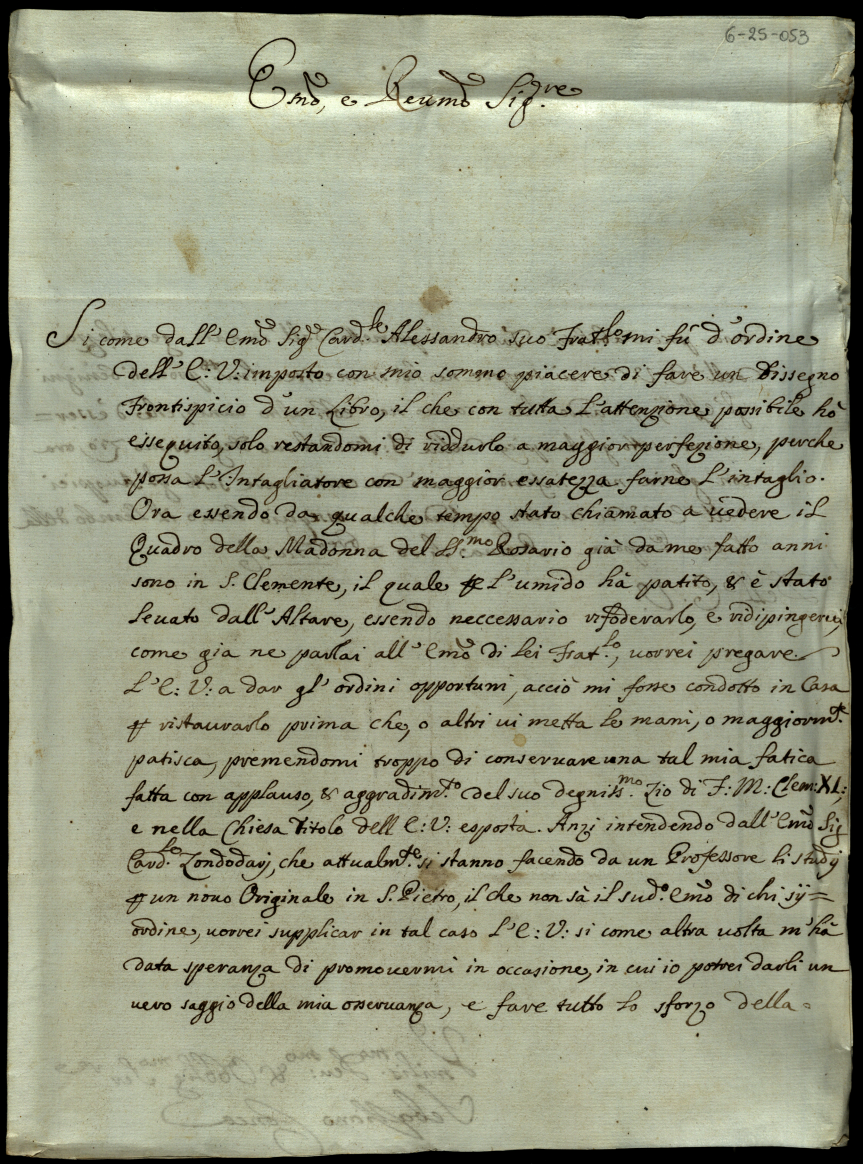 6-25-053
Emo, e Reumo Sig.re
Si come dall' Emo Sigr Card.le Alessandro suo Frat.lo mi fù d'ordine
dell' E: V: imposto con mio sommo piacere di fare un Dissegno
Frontispicio d'un Libro, il che con tutta l'attenzione possibile hò
essequito, solo restandomi di ridurlo a maggior perfezione, perche
possa l'Intagliatore con maggior essatezza farne l'intaglio.
Ora essendo da qualche tempo stato chiamato a uedere il
Quadro della Madonna del SS.mo Rosario già da me fatto anni
sono in S. Clemente, il quale ꝑ l'umido hà patito, & è stato
leuato dall'Altare, essendo neccessario rifoderarlo, e ridipingerui,
come gia ne parlai all' Emo di lei Frat.lo, uorrei pregare
L'E: V: a dar gl' ordini opportuni, acciò mi fosse condotto in Casa
ꝑ ristaurarlo prima che, o altri ui metta le mani, o maggiorm.te
patisca, premendomi troppo di conseruare una tal mia fatica
fatta con applauso, & aggradim.to del suo degniss.mo Zio di F: M: Clem: XI:
e nella Chiesa Titolo dell E: V: esposta. Anzi intendendo dall' Emo Sig
Card.le Zondodarj, che attualm.te si stanno facendo da un Professore li studij
ꝑ un nouo Originale in S. Pietro, il che non sà il sud.o Emo di chi sij=
ordine, uorrei supplicar in tal caso L'E: V: si come altra uolta m'hà
data speranza di promouermi in occasione, in cui io potrei darli un
uero saggio della mia osseruanza, e fare tutto lo sforzo della=